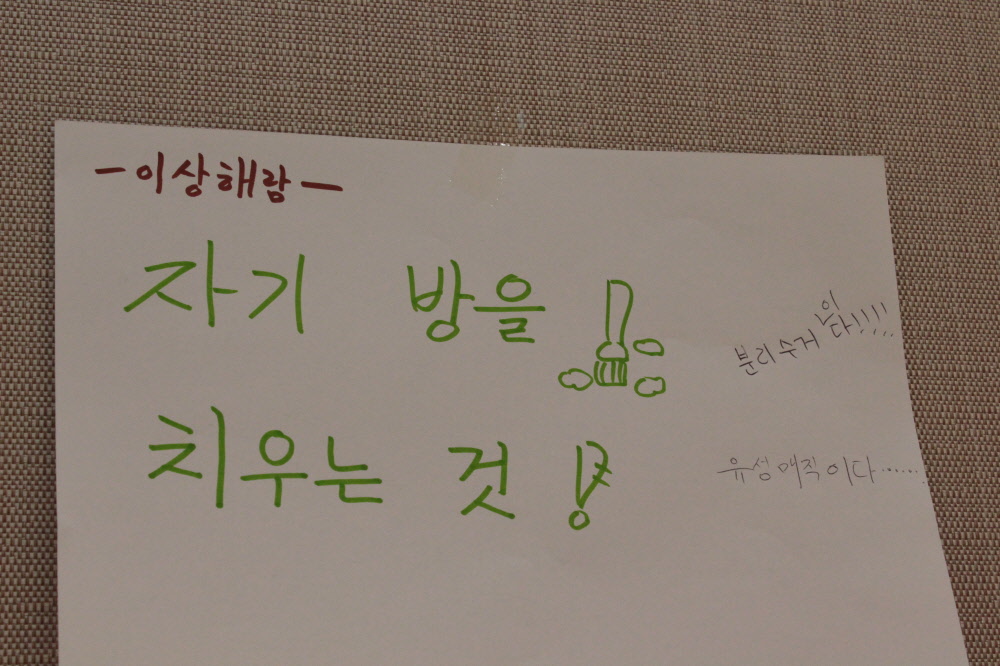 -이상해람-
자기 방을
치우는 것!
분리수거이다!!!!
유성매직이다......